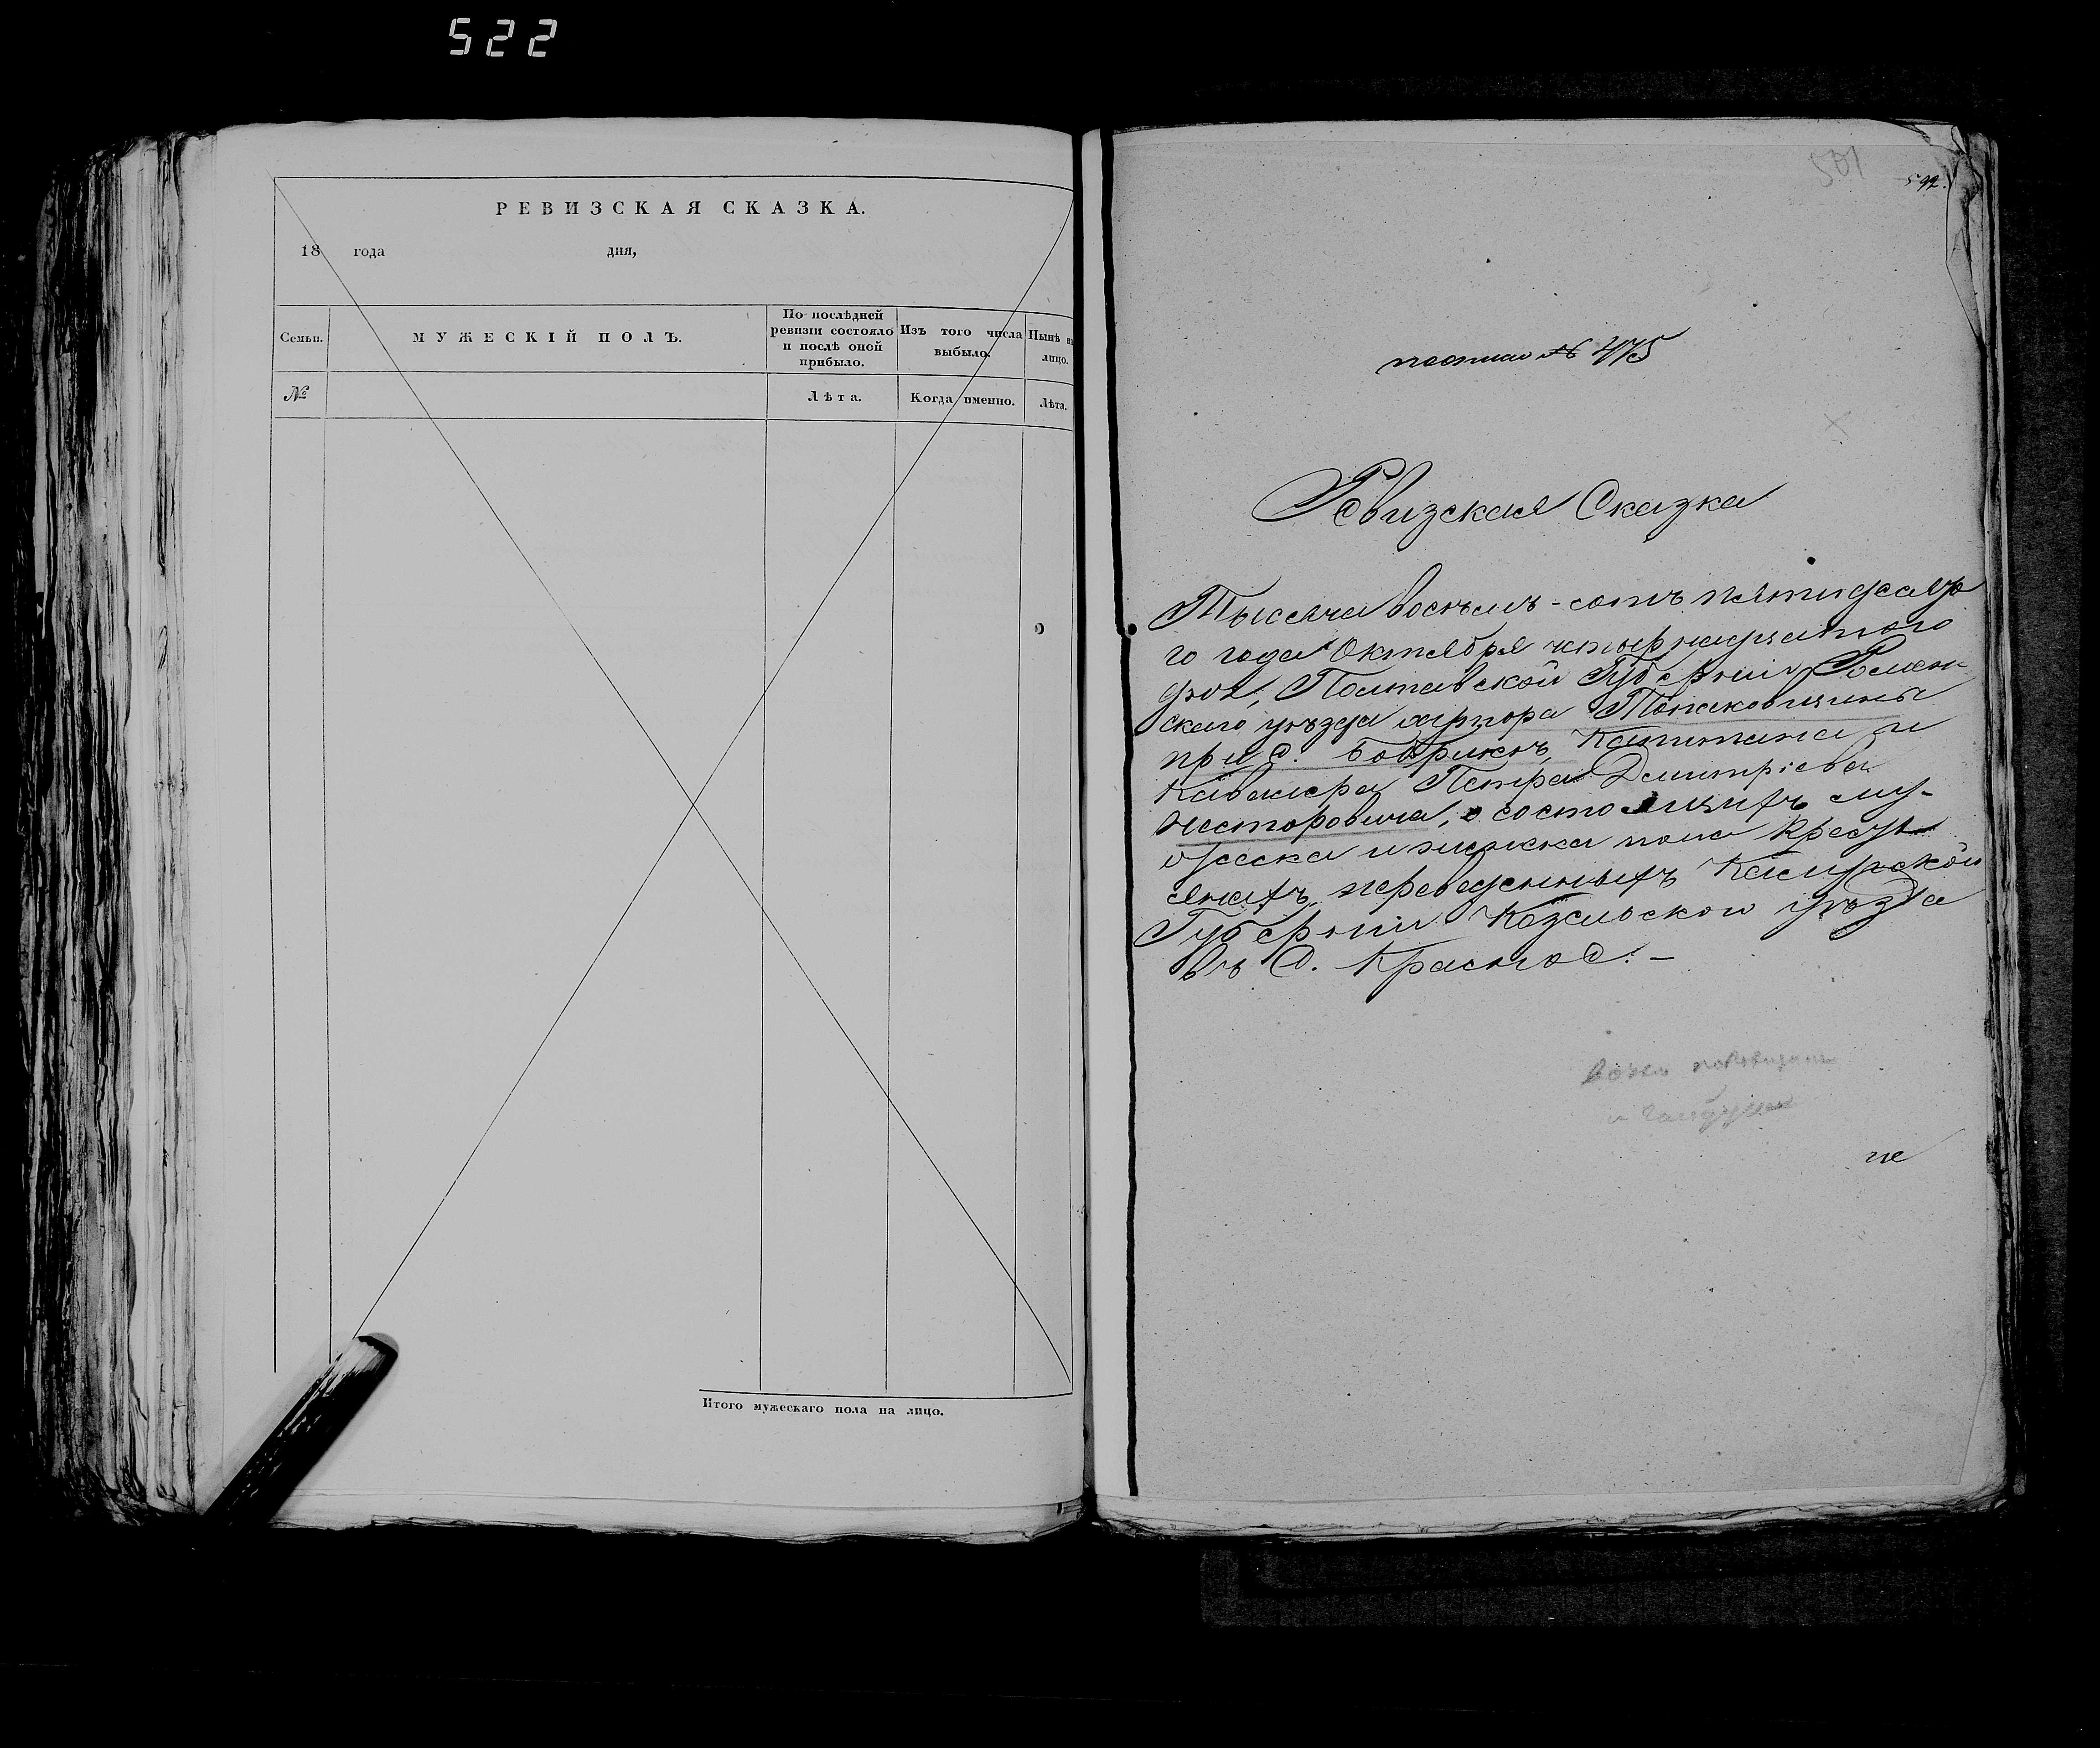 522
РЕВИЗСКАЯ СКАЗКА.
18 года дня,
Семьи.
МУЖЕСКІЙ ПОЛЪ.
По послѣдней ревизіи состояло и послѣ оной прибыло.
Изъ того числа выбыло.
Нынѣ на лицо.
№
Лѣта.
Когда именно.
Лѣта.
Итого мужескаго пола на лицо.
501
№ 475
Ревизская Сказка
Тысяча восемь-сотъ пятидесято
го года Октября четырнадцатого
дня, Полтавской Губерніи Ромен-
скаго уѣзда хутора
при С. Бобрикѣ, Капитана и
Кавалера Петра Дмитріева
Несторовича, о состоящихъ му-
жеска и женска пола Крестья
янахъ, переведенныхъ Калужской
Губерніи Козельскои уѣзда
въ С. Красное. –